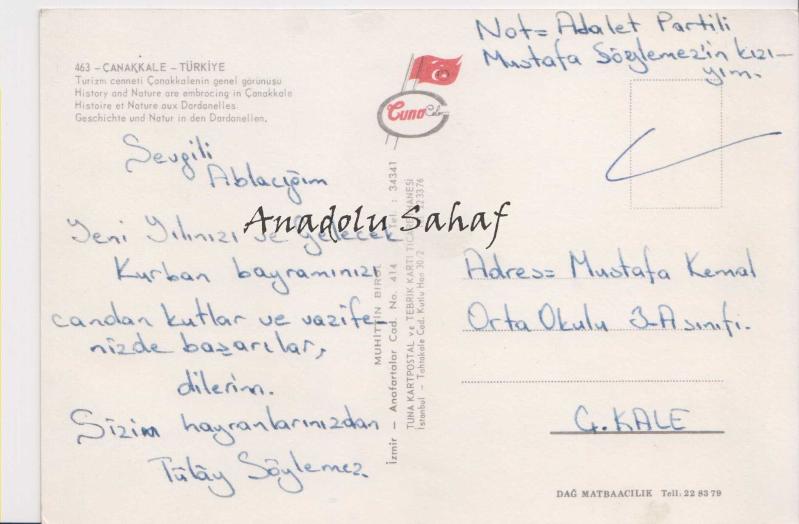 463 – ÇANAKKALE – TÜRKİYE
Turizm cenneti Çanakkalenin genel görünüşü
History and Nature are embrocing in Çanakkale
Histoire et Nature aux Dardanelles.
Geschichte und Natur in den Dardanellen.
Sevgili
Ablacığım
Yeni Yılınızı ve gelecek
Kurban bayramınızı
candan kutlar ve vazife-
nizde başarılar,
dilerim.
Sizim hayranlarınızdan
Tülây Söylemez.
Tuna Color
MUHİTTİN BİROL
İzmir – Anafartalar Cad. No. 414 Tel. : 34341
TUNA KARTPOSTAL ve TEBRİK KARTI TİCARETHANESİ
İstanbul – Tahtakale Cad. Kutlu Han 30/2 223376
Anadolu Sahaf
Not= Adalet Partili
Mustafa Söylemez'in kızı-
yım.
Adres= Mustafa Kemal
Orta Okulu 3-A sınıfı.
Ç.KALE
DAĞ MATBAACILIK Tell: 22 83 79